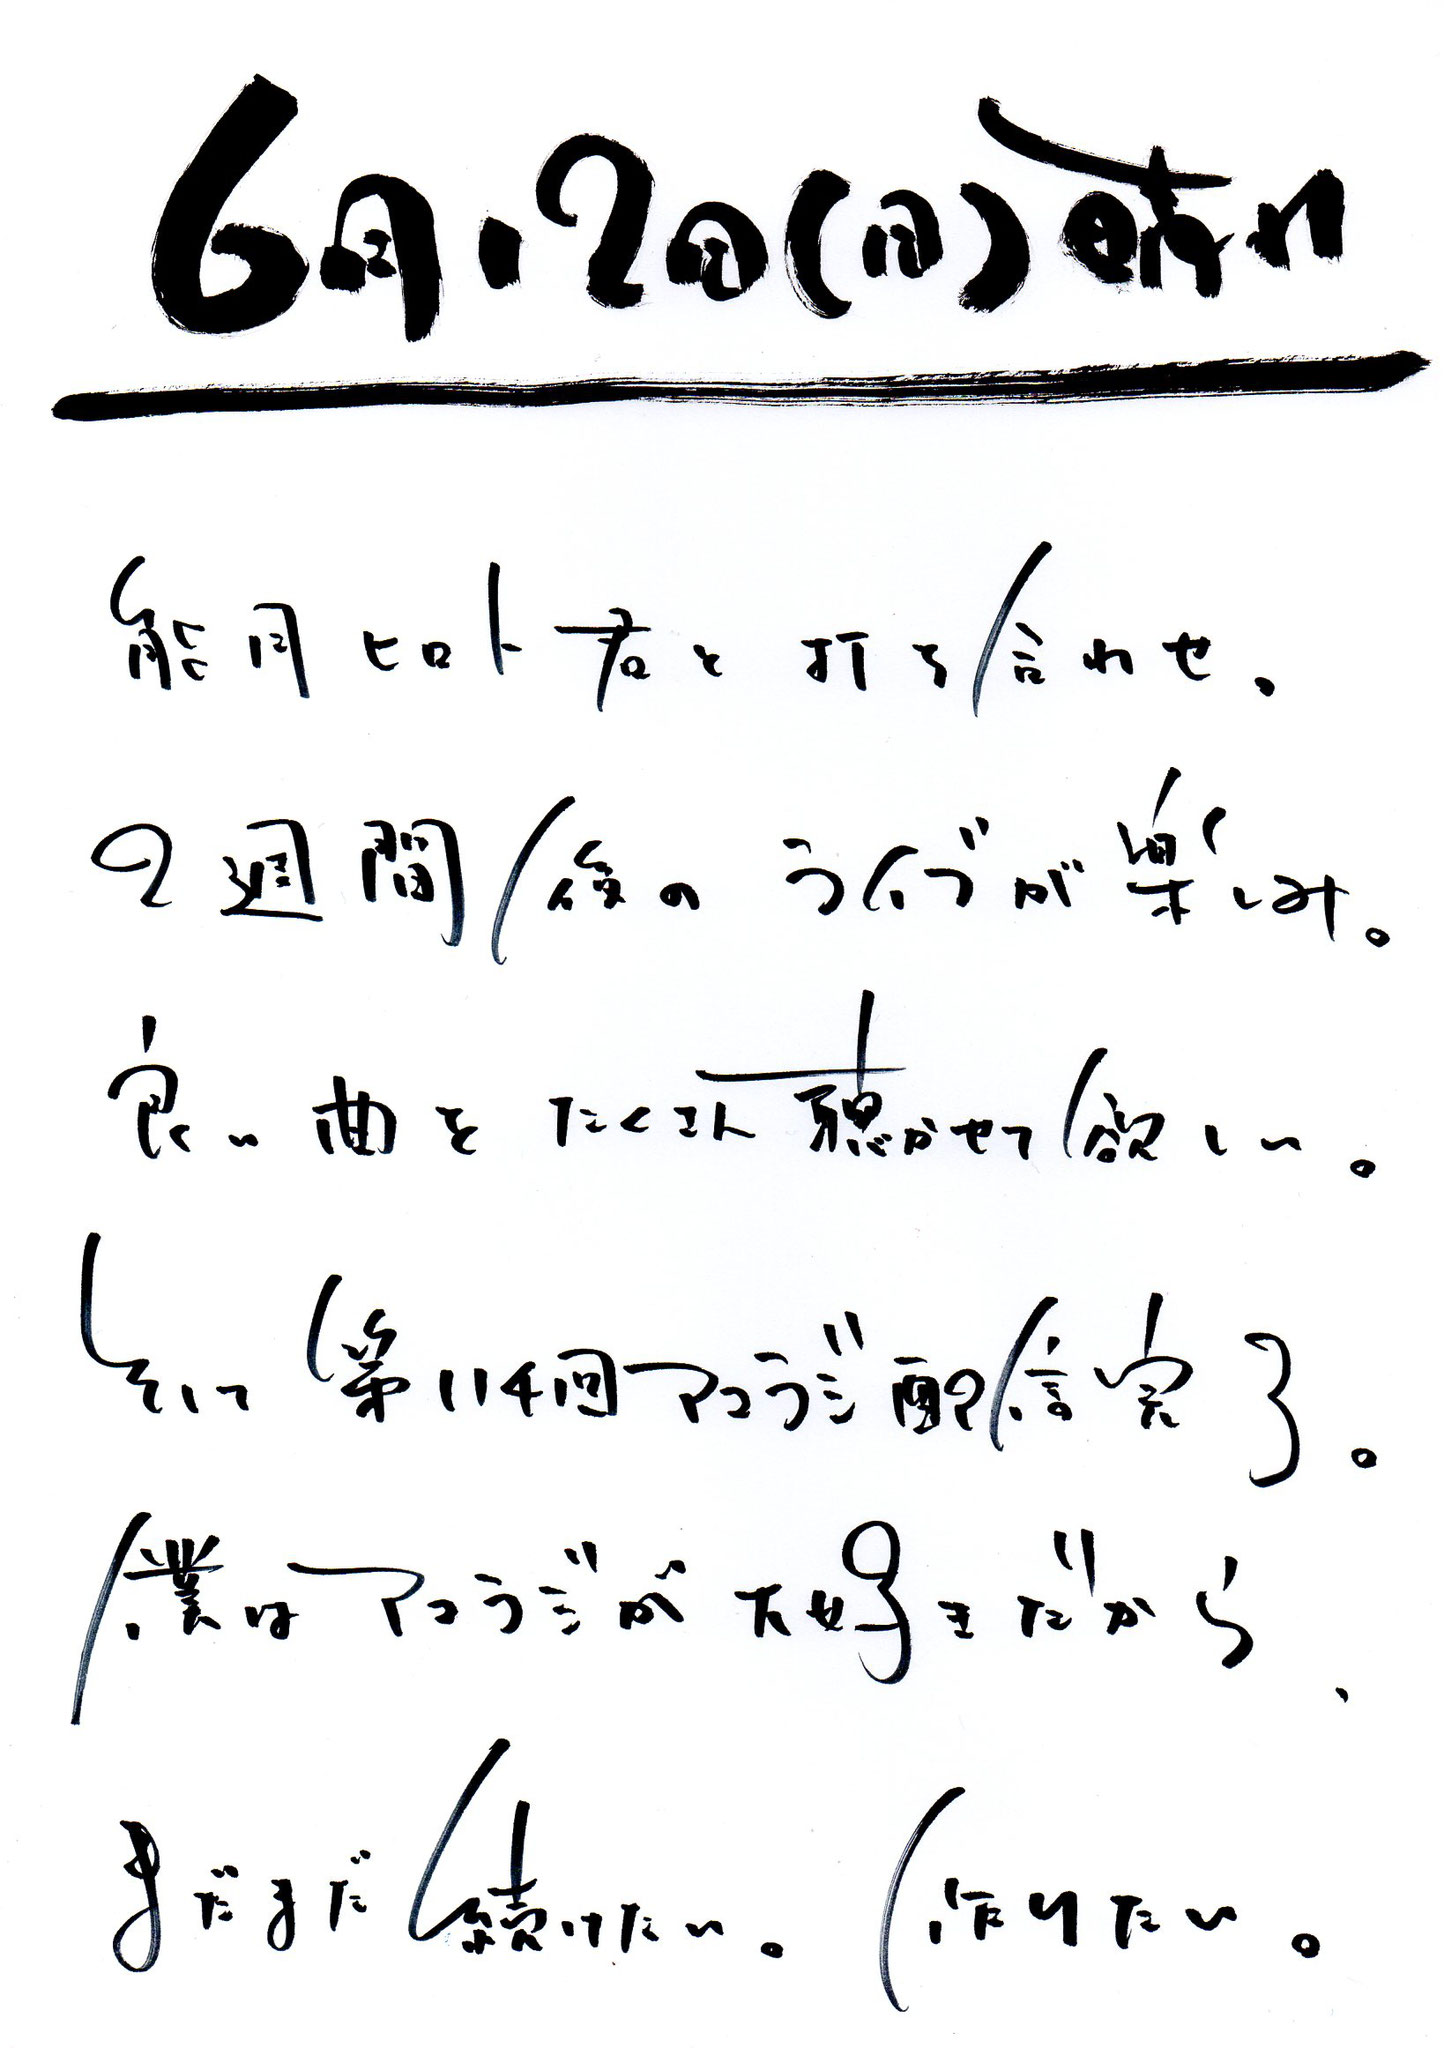 6月12日(日)晴れ
能月ヒロト君と打ち合わせ。
2週間後のライブが楽しみ。
良い曲をたくさん聴かせて欲しい。
そして第114回アコラジ配信完了。
僕はアコラジが大好きだから、
まだまだ続けたい。作りたい。